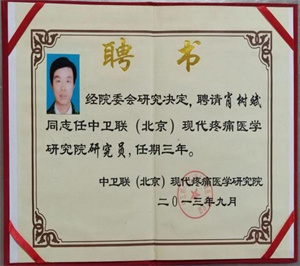 聘书
经院委会研究决定，聘请肖树斌
同志任中卫联（北京）现代疼痛医学
研究院研究员，任期三年。
中卫联（北京）现代疼痛医学研究院
二〇一三年九月